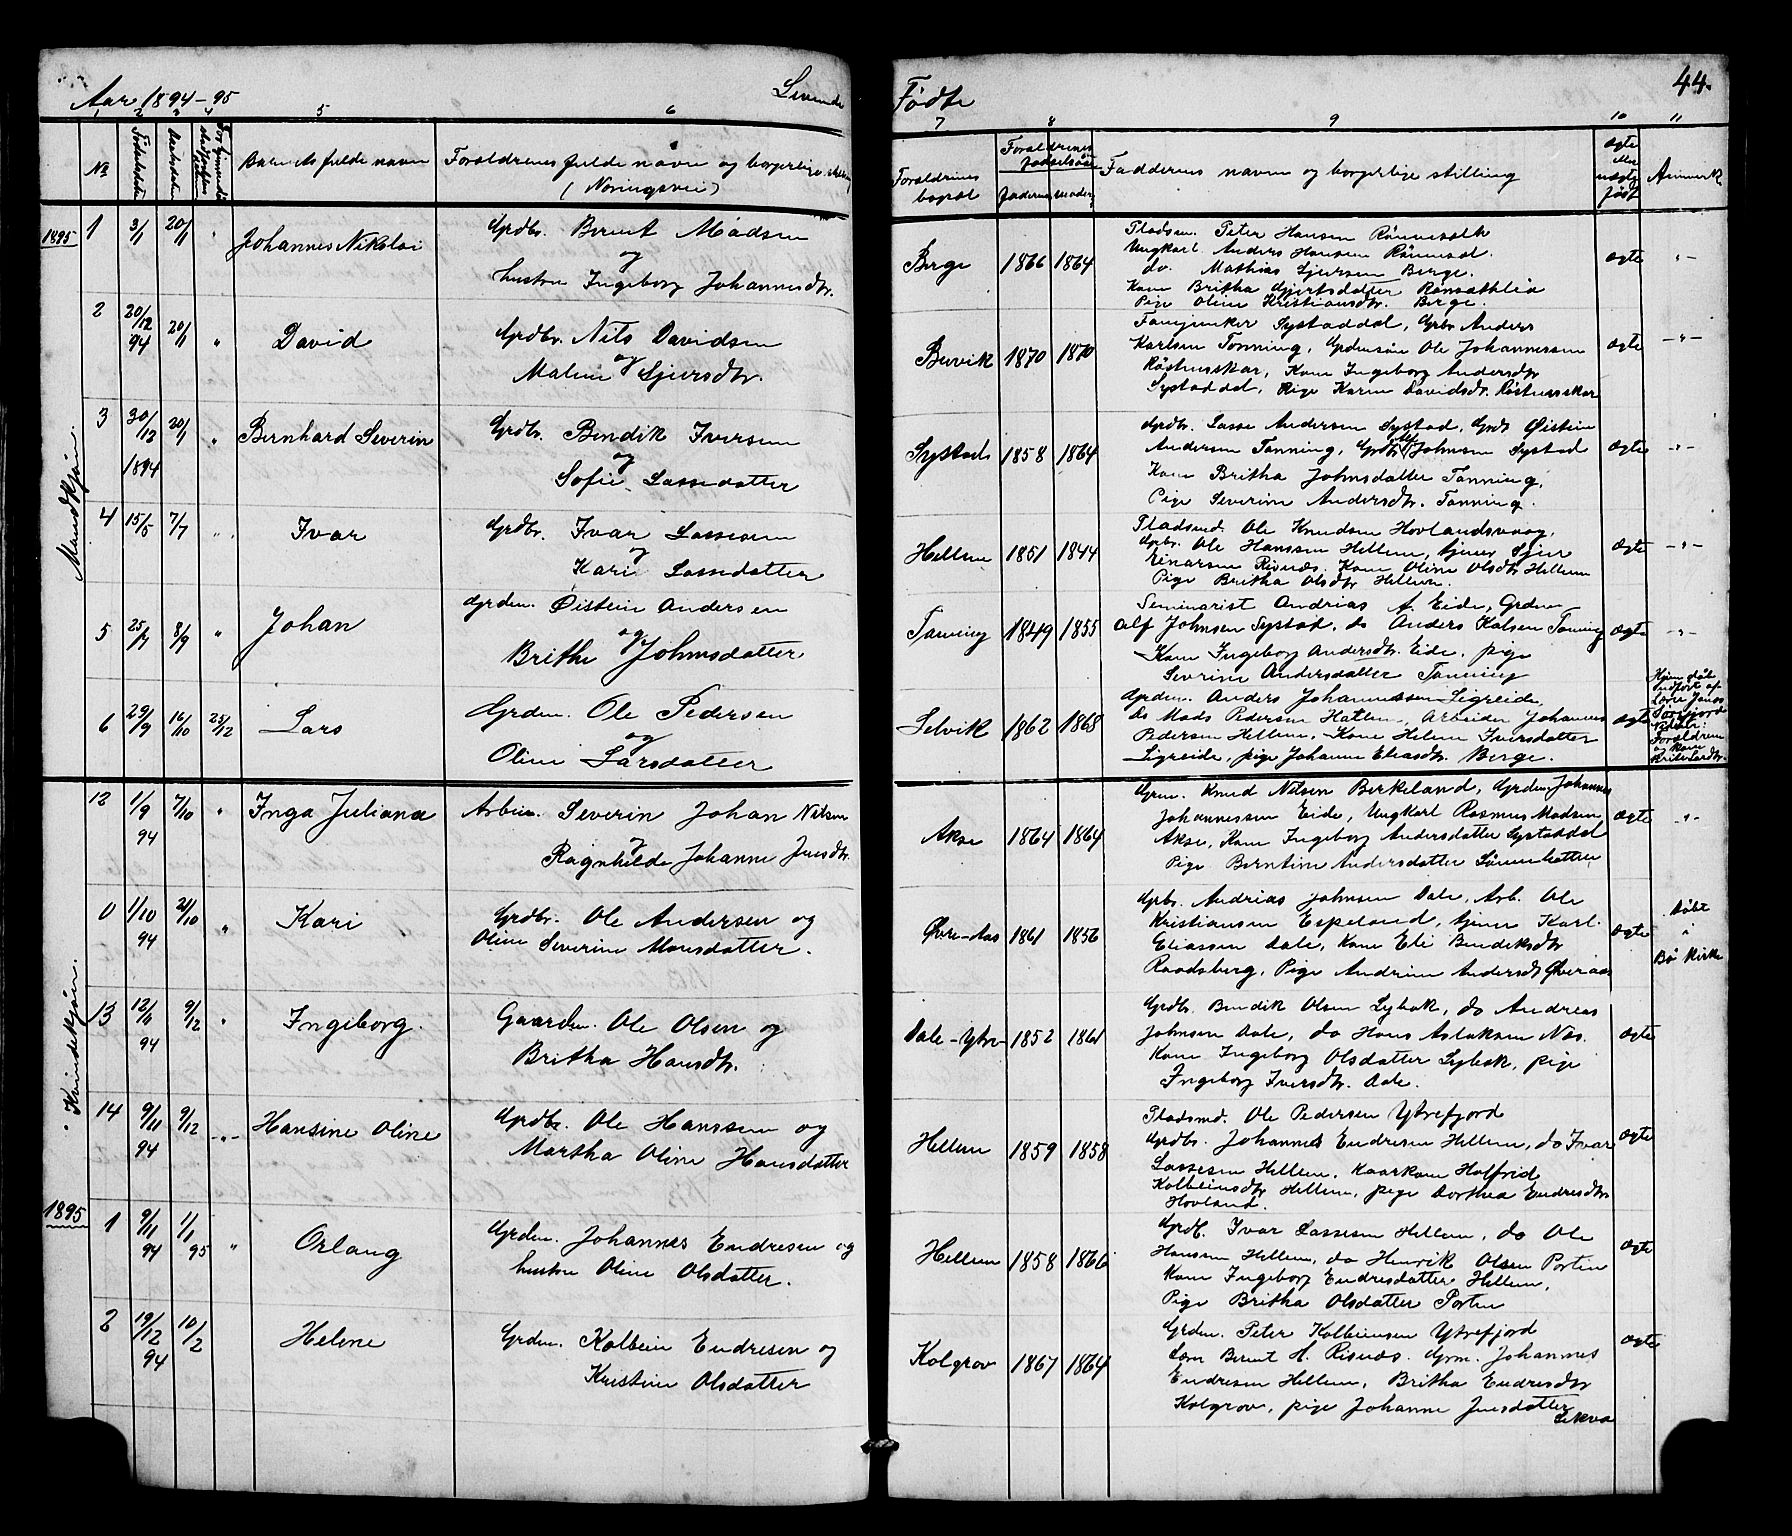 Aar 1894-95
Levende
Fødte
44.
1 2 3 4 5 6
7 8 9 10 11
No
Fødselsdatum
Daabsdatum
Barnets fulde navn
Forældrenes fulde navn og borgerlige stilling
(Næringsvei)
Forældrenes bopæl
Forældrenes fødselsaar
faderens moders
Faddernes navn og borgerlige stilling
Ægte eller uægte født
Anmærk
Mandkjøn.
1895 1 3/1 20/1 " Johannes Nikolai
Grdbr. Bernt Madsen
og
hustru Ingeborg Johannesdtr.
Berge 1866 1864
Pladsm. Peter Hansen
Ungkarl Anders Hansen
do. Mathias Sjursen Berge.
Kone Britha Gjertsdatter
Pige Oline Kristiansdtr. Berge.
Ægte "-
2 20/12 94 20/1 " David
Grdbr. Nils Davidsen
og
Malene Sjursdtr.
1870 1870
Systaddal, Grbr Anders
Karlsen Tonning, Grdmsøn Ole Johannessen
Kone Ingeborg Andersdtr
Systaddal, Pige Karen Davidsdtr.
Ægte -"-
3 30/12 1894 20/1 " Bernhard Severin
Grdbr. Bendik Iversen
og
Sofie Lassedatter
Systad 1858 1864
Grdbr. Lasse Andersen Systad, Grdb Øistein
Andersen Tonning, Grdbr. Johnsen Systad
Kone Britha Johnsdatter Tonning,
Pige Severine Andersdtr. Tonning.
Ægte -"-
4 15/5 7/7 " Ivar
Grdbr. Ivar Lassesen
og
Kari Lassedatter
Hellem 1851 1844
Pladsmd. Ole Knudsen Hovlandsvaag,
Grbr. Ole Hanssen Hellem, tjener Sjur
Einarsen Risnæs. Kone Oline Olsdtr Hellem
Pige Britha Olsdtr Hellem.
Ægte -"-
5 25/7 8/9 " Johan
Grdm. Øistein Andersen
og
Brithe Johnsdatter
Tonning 1849 1855
Seminarist Andrias A. Eide, Grdm
Alf Johnsen Systad, do Anders Kalsen Tonning
Kone Ingeborg Andersdtr. Eide, pige
Severine Andersdatter Tonning
Ægte -"-
6 29/9 16/10 25/12 Lars
Grdm. Ole Pedersen
og
Oline Larsdatter
Selvik 1862 1868
Grdm. Anders Johannessen Ligreide,
do Mads Pedersen Hatlem, Arbeider Johannes
Pedersen Hellem, Kone Helene Iversdatter
Ligreide, pige Johanne Eliasdtr. Berge.
Ægte
Hjem døbt
Forældrene
og kone
Kvindekjøn.
12 1/9 94 7/10 " Inga Juliana
Arbeim. Severin Johan Nilsen
og
Ragnhilde Johanne Jensdtr.
Akse 1864 1864
Grm. Knud Nilsen Birkeland, Grdm Johannes
Johannessen Eide, Ungkarl Rasmus Madsen
Akse, Kone Ingeborg Andersdatter Systaddal
Pige Berntine Andersdatter
Ægte "-
0 1/10 94 21/10 " Kari
Grdbr. Ole Andersen og
Oline Severine Monsdatter.
Øvre-Aas 1861 1856
Grbr. Andrias Johnsen Dale, Arb. Ole
Kristiansen Espeland, tjener Karl
Eliassen Dale, Kone Eli Bendiksdtr
Raadsberg, Pige Andrine Andersdt Øvreaas
Ægte
Døbt
i
Bø Kirke
13 12/11 94 9/12 " Ingeborg.
Gaardm. Ole Olsen og
Britha Hansdtr.
Dale-Ytre 1852 1861
Grdb. Bendik Olsen Lybæk, do Andreas
Johnsen Dale, do Hans Aslaksen Næs.
Kone Ingeborg Olsdatter Lybæk, pige
Ingeborg Iversdtr. Dale.
Ægte
14 9/11 94 9/12 -"- Hansine Oline
Grdbr. Ole Hanssen og
Martha Oline Hansdatter
Hellem 1859 1858
Pladsmd. Ole Pedersen Ytrefjord
Grdbr. Johannes Endresen Hellem, do Ivar
Lassesen Hellem, Kaarkone Holfrid
Kolbeinsdtr Hellem, pige Dorthea Endresdtr
Hovland.
Ægte
1895 1 9/11 94 1/1 95 " Orlaug
Grdm. Johannes Endresen og
hustru Oline Olsdatter.
Hellem 1858 1866
Grdb. Ivar Lassesen Hellem, do Ole
Hansen Hellem, do Henrik Olsen Porten
Kone Ingeborg Endresdatter Hellem,
Pige Britha Olsdatter Porten
Ægte
2 19/12 94 10/2 Helene
Grdm. Kolbein Endresen og
Kristine Olsdatter
Kolgrov 1867 1864
Grdm. Peter Kolbeinsen Ytrefjord
Bernt H. Risnæs. Grm. Johannes
Endresen Hellem, Britha Endresdtr
Kolgrov, pige Johanne Jensdatter
Ægte